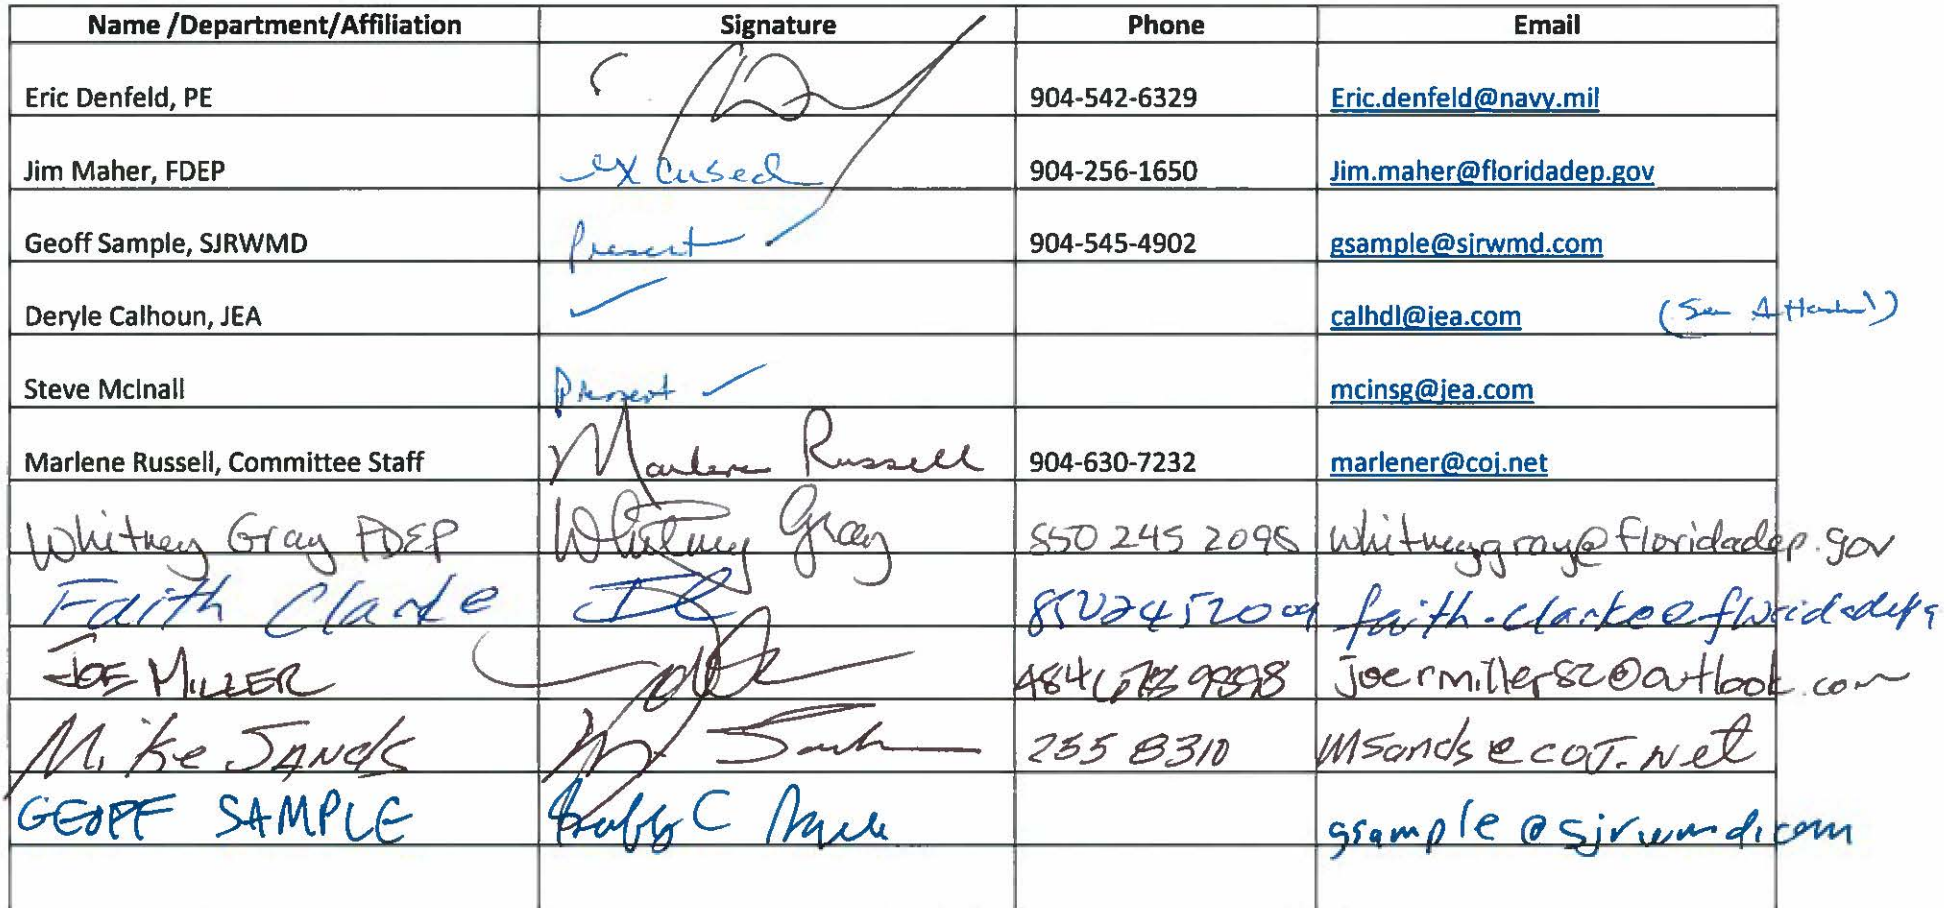 Name /Department/Affiliation Signature Phone Email
Eric Denfeld, PE 904-542-6329 Eric.denfeld@navy.mil
Jim Maher, FDEP excused 904-256-1650 Jim.maher@floridadep.gov
Geoff Sample, SJRWMD Present ✓ 904-545-4902 gsample@sjrwmd.com
Deryle Calhoun, JEA ✓ calhdl@jea.com (See Attached)
Steve McInall Present ✓ mcinsg@jea.com
Marlene Russell, Committee Staff Marlene Russell 904-630-7232 marlener@coj.net
Whitney Gray FDEP Whitney Gray 850 245 2098 whitney.gray@floridadep.gov
Faith Clarke FC faith.clarke@floridadep
JOE MILLER joermiller82@outlook.com
Mike SANds M Sands 255 8310 Msands@coJ.Net
GEOFF SAMPLE gsample@sjrwmd.com